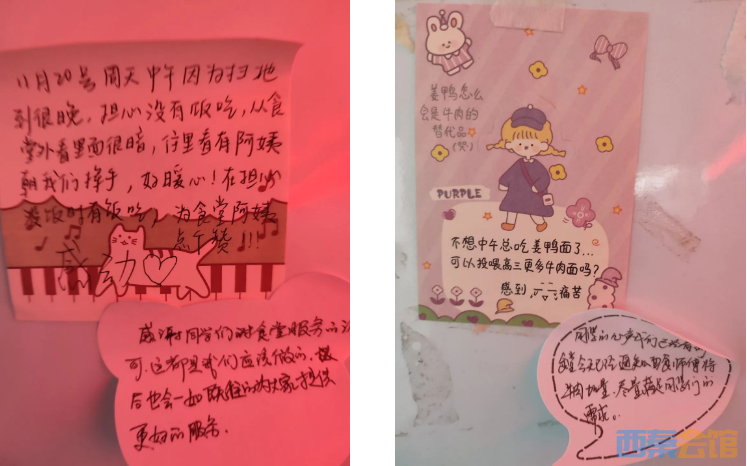 11月20号周天中午因为扫地
到很晚，担心没有饭吃，从食
堂外看里面很暗，往里看有阿姨
朝我们挥手，好暖心！在担心
没饭时有饭吃，为食堂阿姨
点个赞!!!
感动♡
感谢同学们对食堂服务的认
可，这都是我们应该做的，
后也会一如既往的为大家提供
更好的服务.
姜鸭怎么
会是牛肉的
替代品
(哭)
PURPLE
不想中午总吃姜鸭面了...
可以投喂高三更多牛肉面吗?
感到 痛苦
同学的心声我们已经
今天已经通知
牛肉 尽量满足同学们的
需求.
西蔡会馆